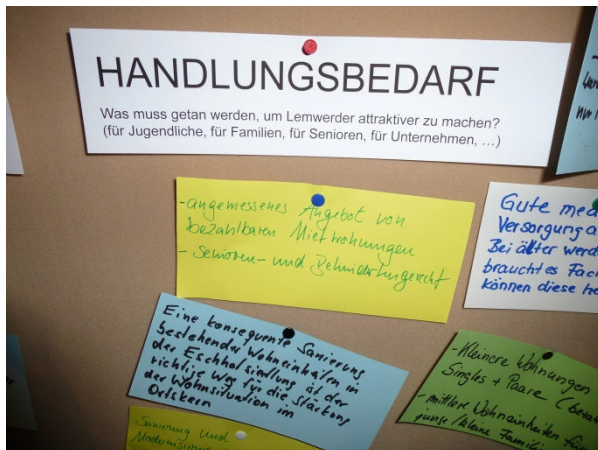 HANDLUNGSBEDARF
Was muss getan werden, um Lemwerder attraktiver zu machen?
(für Jugendliche, für Familien, für Senioren, für Unternehmen, ...)
-angemessenes Angebot von
bezahlbaren Mietwohnungen
- Senioren- und Behindertengerecht
Gute med
Versorgung a
Bei älter werd
braucht es Fac
können diese
Eine konsequente Sanierung
bestehender Wohneinheiten in
der Eschhofsiedlung ist der
richtige Weg für die Stärkung
der Wohnsituation im
Ortskern
-Kleinere Wohnungen
Singles + Paare
- mittlere Wohneinheiten für
junge/kleine Famili
Sanierung und